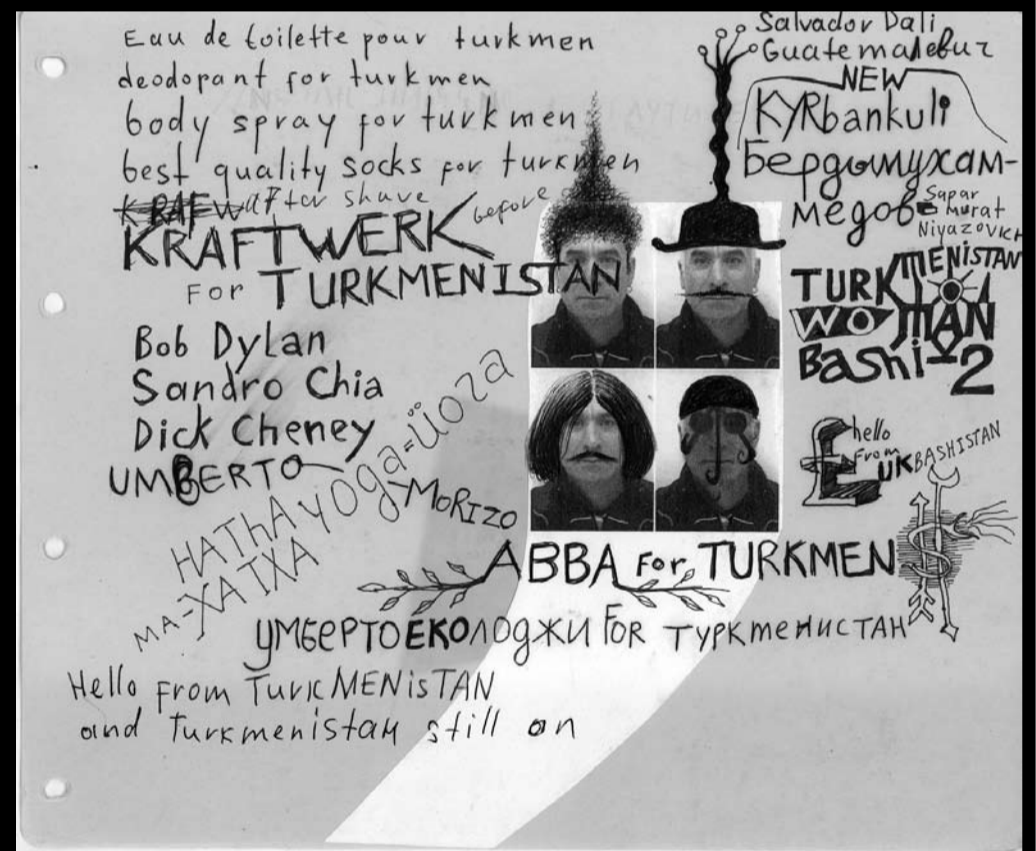 Eau de toilette pour turkmen
deodorant for turkmen
body spray for turkmen
best quality socks for turkmen
KRAFW after shave before
KRAFTWERK
FOR TURKMENISTAN
Bob Dylan
Sandro Chia
Dick Cheney
UMBERTO
MORIZO
HATHA YOGA=ÜOZA
MA-XATXA
Salvador Dali
Guatemalebur
NEW
KYRbankuli
Бердымухам-
медов
Sapar
Murat
Niyazovich
TURKMENISTAN
TURKMAN
WOMAN
Bashi-2
£
hello
From
UKBASHISTAN
$
ABBA For TURKMEN
УМБЕРТОЕКОЛОДЖИ FOR ТУРКМЕНИСТАН
Hello From TurkMENisTAN
and Turkmenistan still on